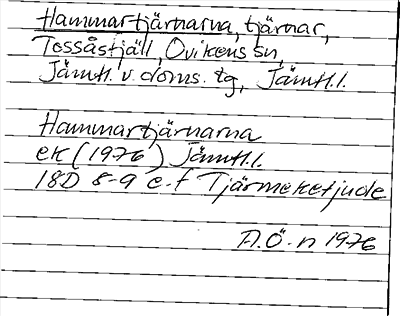 Hammartjärnarna, tjärnar,
Tossåsfjäll, Ovikens sn,
Jämtl. v. doms. tg, Jämtl. l.
Hammartjärnarna
ek (1976) Jämtl. l.
18D 8-9 e-f Tjärmeketjude
A.Ö-n 1976